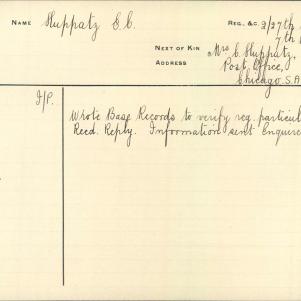 NAME Huppatz E.C. REG., &C. 2/27th
7th
NEXT OF KIN Mrs C. Huppatz,
ADDRESS Post Office,
Chicago. S.A
I/P.
Wrote Base Records to verify reg. particul
Recd. Reply. Information sent Enquire